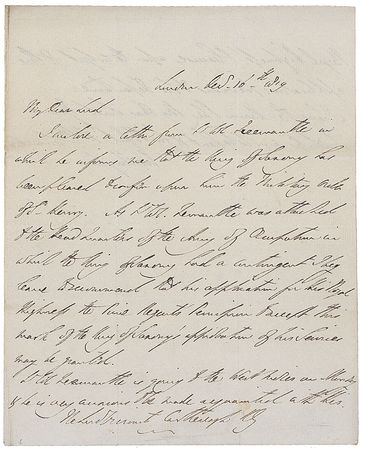 London Oct. 16th 1819
My Dear Lord
I enclose a letter from Lt Col. Fremantle in
which he informs me that the King of Saxony has
been pleased to confer upon him the Military Order
of St Henry. As Lt Col. Fremantle was attached
to the Head Quarters of the Army of Occupation in
which the King of Saxony had a contingent I beg
leave to recommend that his application for His Royal
Highness the Prince Regent's Permission to accept this
mark of the King of Saxony's approbation of his Services
may be granted.
Lt Col Fremantle is going to the West Indies on
& he is very anxious to be made acquainted with
Viscount Castlereagh KG